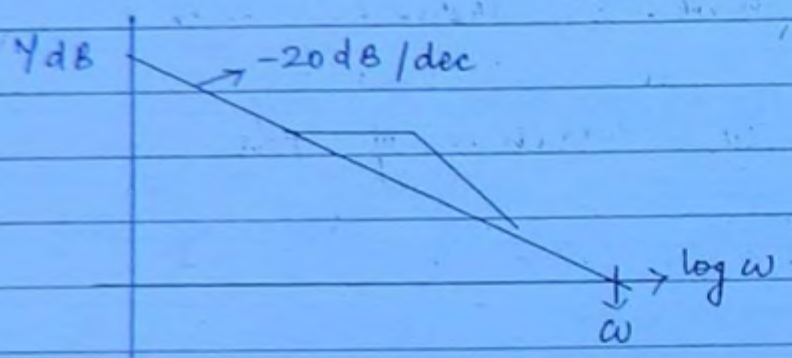 Y dB
-20 dB/dec
log ω
ω